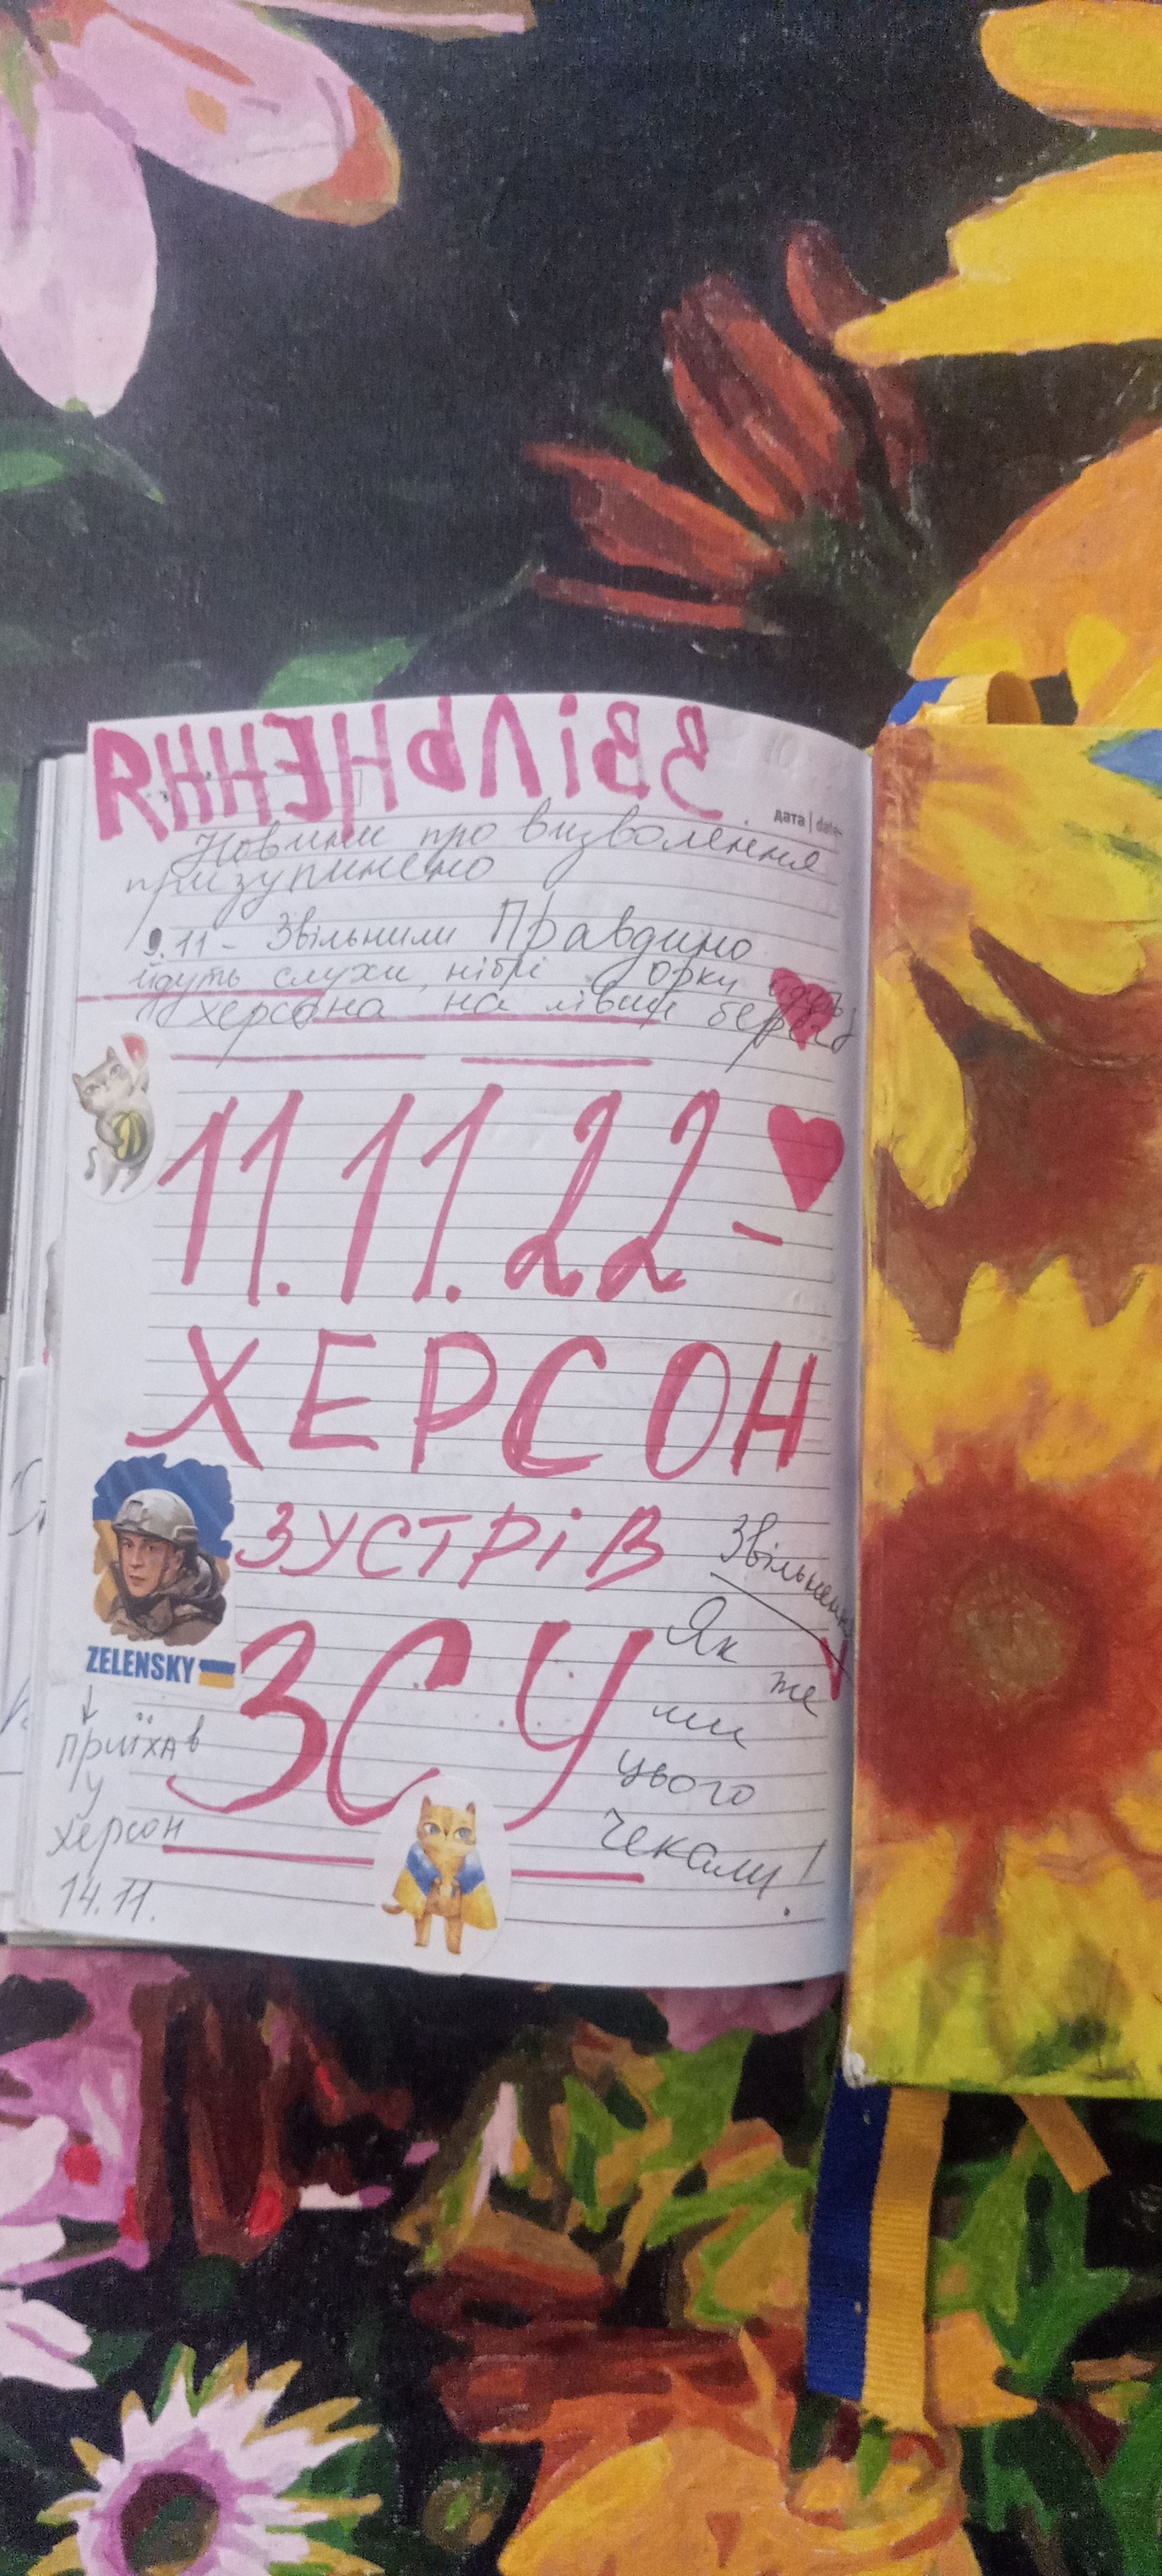 ЗВІЛЬНЕННЯ
дата | date
Новини про визволення
призупинено
9.11 - Звільнили Правдино
йдуть слухи, нібрі орки йдуть з
Херсона на лівий берег
11.11.22 -
ХЕРСОН
ЗУСТРІВ
ЗСУ
Звільнення
Як
же
ми
цього
чекали!
ZELENSKY
приїхав
у
Херсон
14.11.